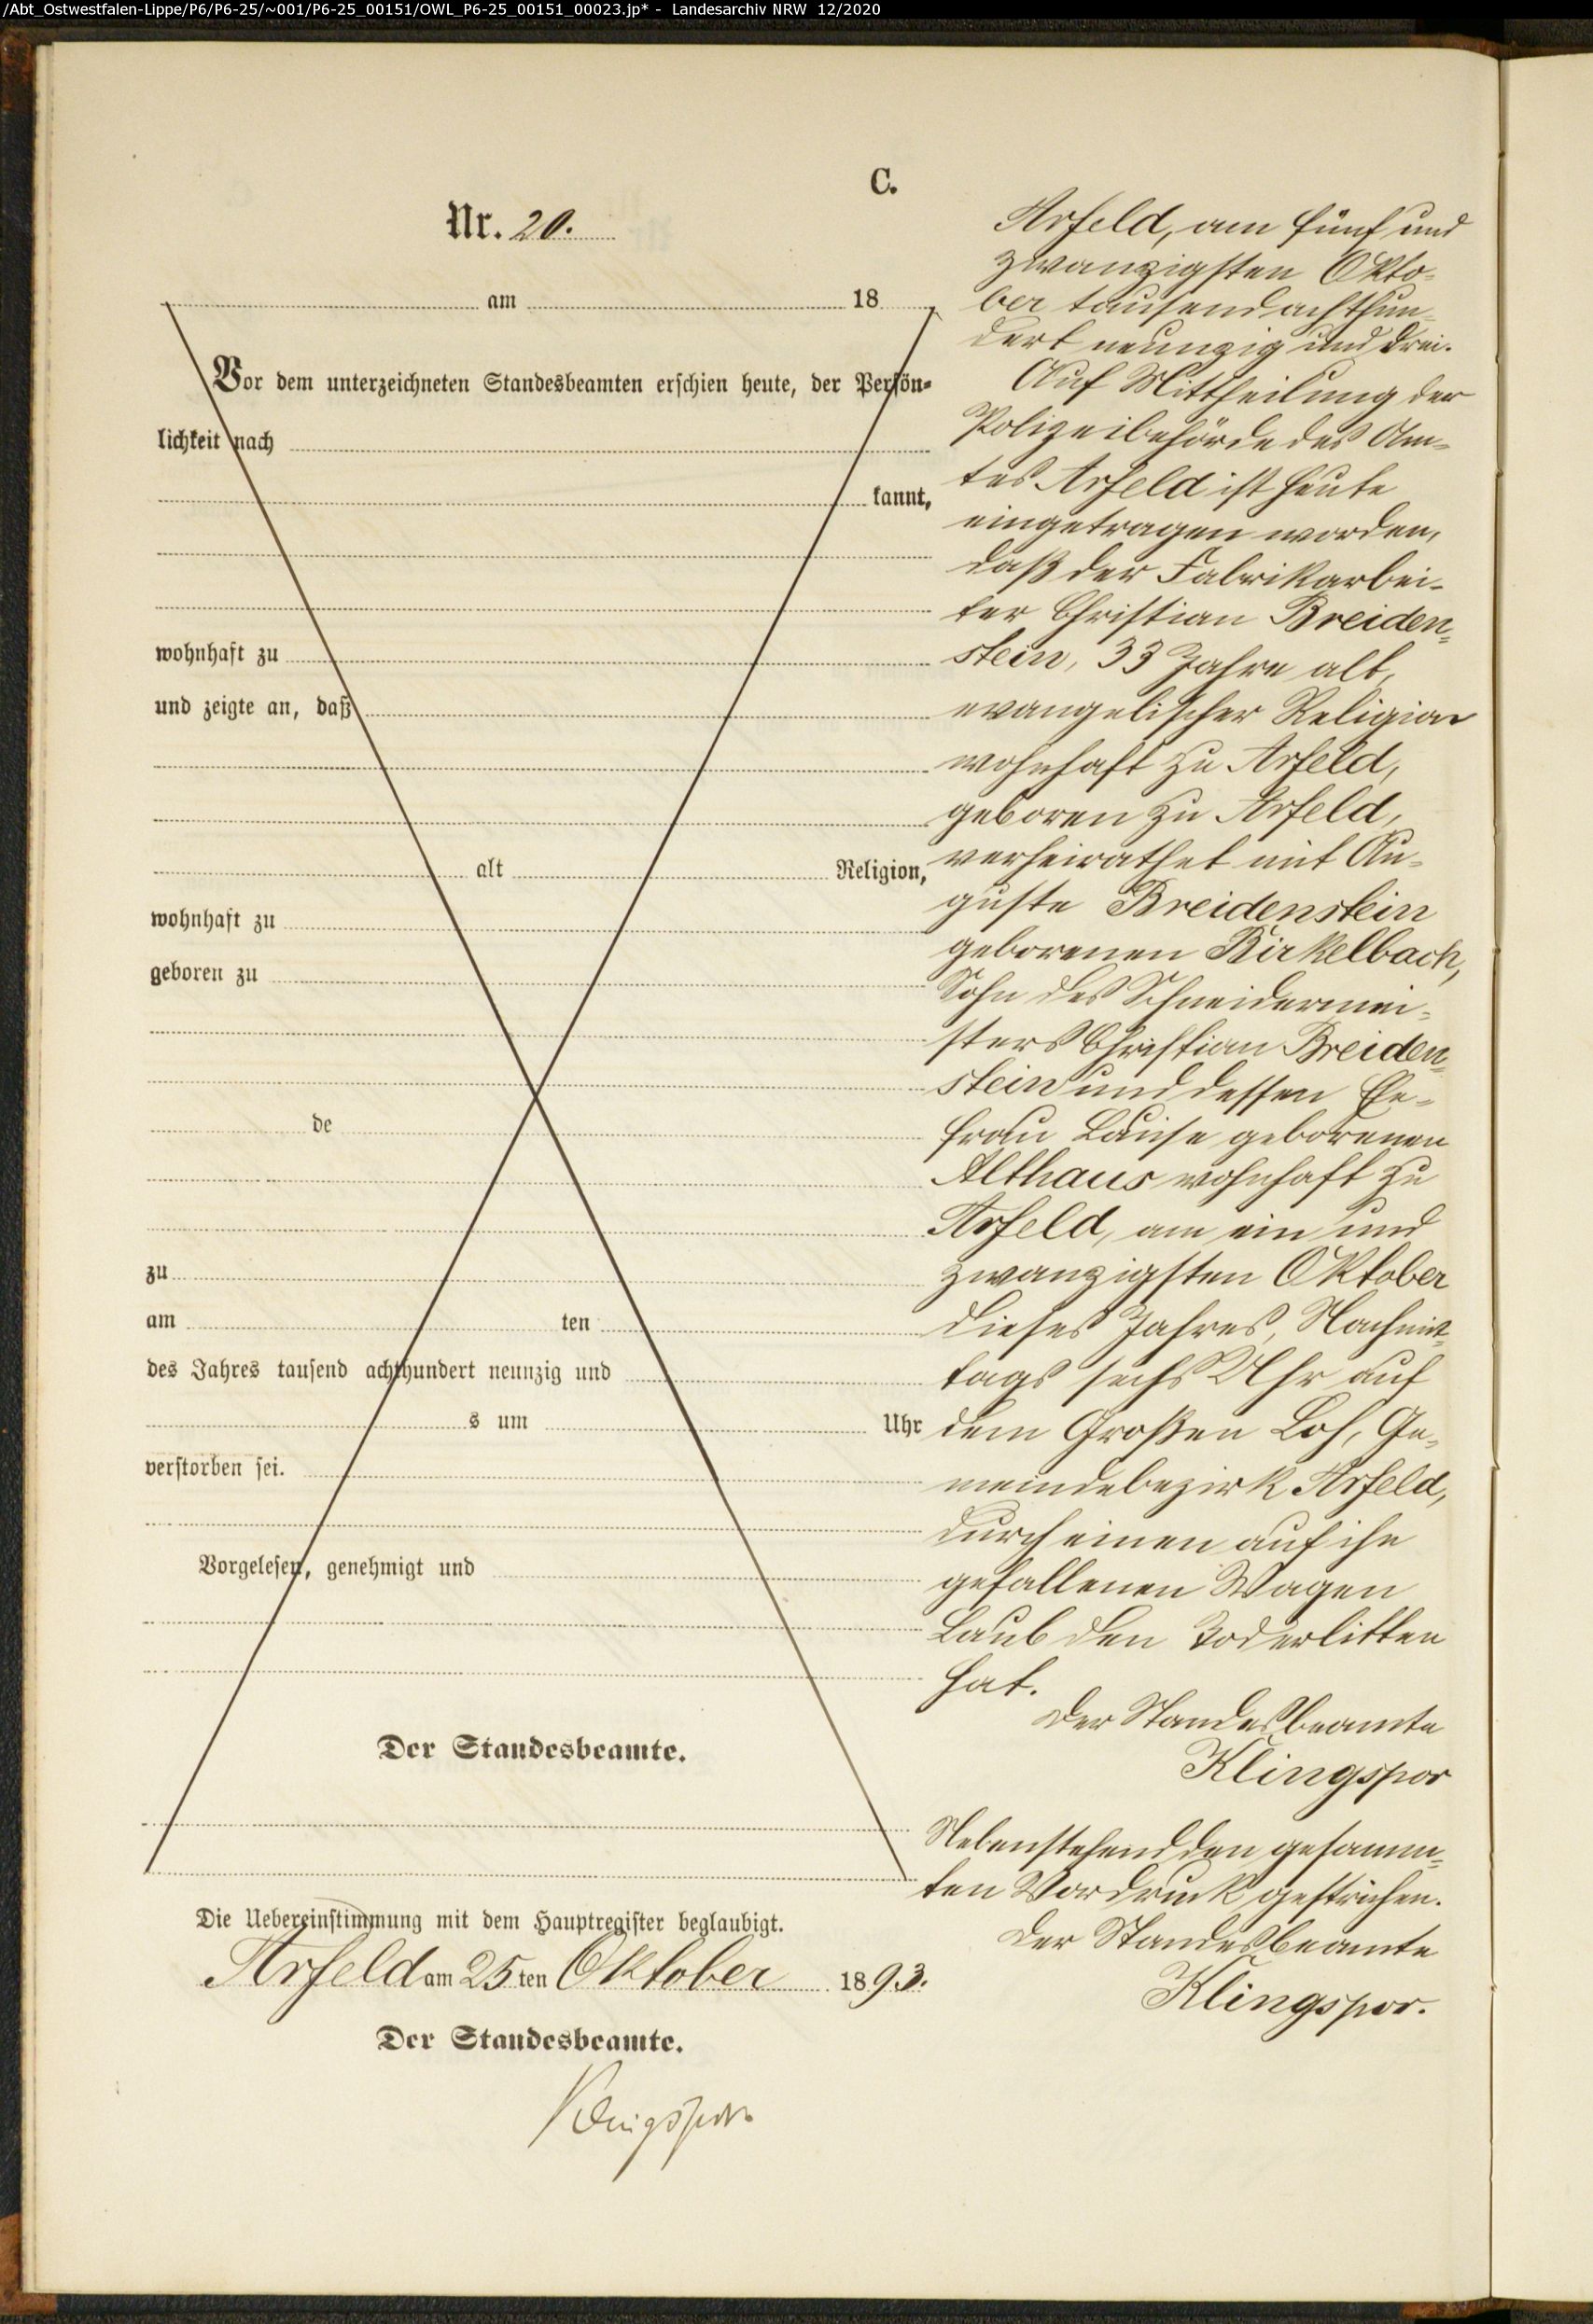 /Abt_Ostwestfalen-Lippe/P6/P6-25/~001/P6-25_00151/OWL_P6-25_00151_00023.jp* - Landesarchiv NRW 12/2020
C.
Nr. 20.
am 18
Vor dem unterzeichneten Standesbeamten erschien heute, der Persön-
lichkeit nach
kannt,
wohnhaft zu
und zeigte an, daß
alt Religion,
wohnhaft zu
geboren zu
de
zu
am ten
des Jahres tausend achthundert neunzig und
s um Uhr
verstorben sei.
Vorgelesen, genehmigt und
Der Standesbeamte.
Arfeld, am fünf und
zwanzigsten Okto-
ber tausend achthun-
dert neunzig und drei.
Auf Mittheilung der
Polizeibehörde des Am-
tes Arfeld ist heute
eingetragen worden,
daß der Fabrikarbei-
ter Christian Breiden-
stein, 33 Jahre alt,
evangelischer Religion
wohnhaft zu Arfeld,
geboren zu Arfeld,
verheirathet mit Au-
guste Breidenstein
geborenen Birkelbach,
Sohn des Schneidermei-
sters Christian Breiden-
stein und dessen Ehe-
frau Louise geborenen
Althaus wohnhaft zu
Arfeld, am ein und
zwanzigsten Oktober
dieses Jahres, Nachmit-
tags sechs Uhr auf
dem Großen Loh, Ge-
meindebezirk Arfeld,
durch einen auf ihn
gefallenen Wagen
Laub den Tod erlitten
hat.
Der Standesbeamte
Klingspor
Nebenstehend den gesamm-
ten Vordruck gestrichen.
Der Standesbeamte
Klingspor.
Die Uebereinstimmung mit dem Hauptregister beglaubigt.
Arfeld am 25 ten Oktober 1893.
Der Standesbeamte.
Klingspor